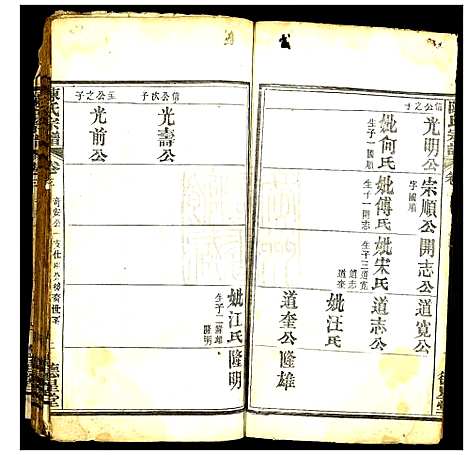 陳氏宗譜
信公之子
光明公
妣何氏
生子一國順
宗順公
字國順
妣傅氏
生子一開志
開志公
妣宋氏
生子三道寬
道志
道奎
道寬公
道志公
妣汪氏
道奎公
隆雄
信公次子
光壽公
至公之子
光前公
妣江氏
生子二隆雄
隆明
隆明
陳氏宗譜
卷
德星堂